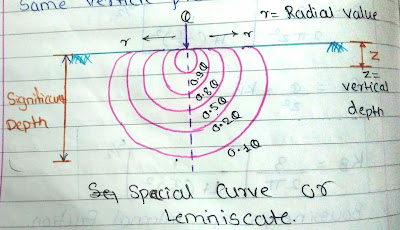 Same vertical p
Q
r = Radial value
r
r
z
z =
vertical
depth
Significant
Depth
0.9Q
0.8Q
0.5Q
0.2Q
0.1Q
Special Curve or
Lemniscate.